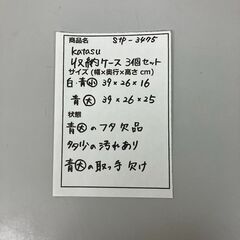 商品名 STP-3475
katasu
収納ケース 3個セット
サイズ(幅×奥行×高さcm)
白・青小 39×26×16
青大 39×26×25
状態
青大のフタ欠品
多少の汚れあり
青大の取っ手欠け